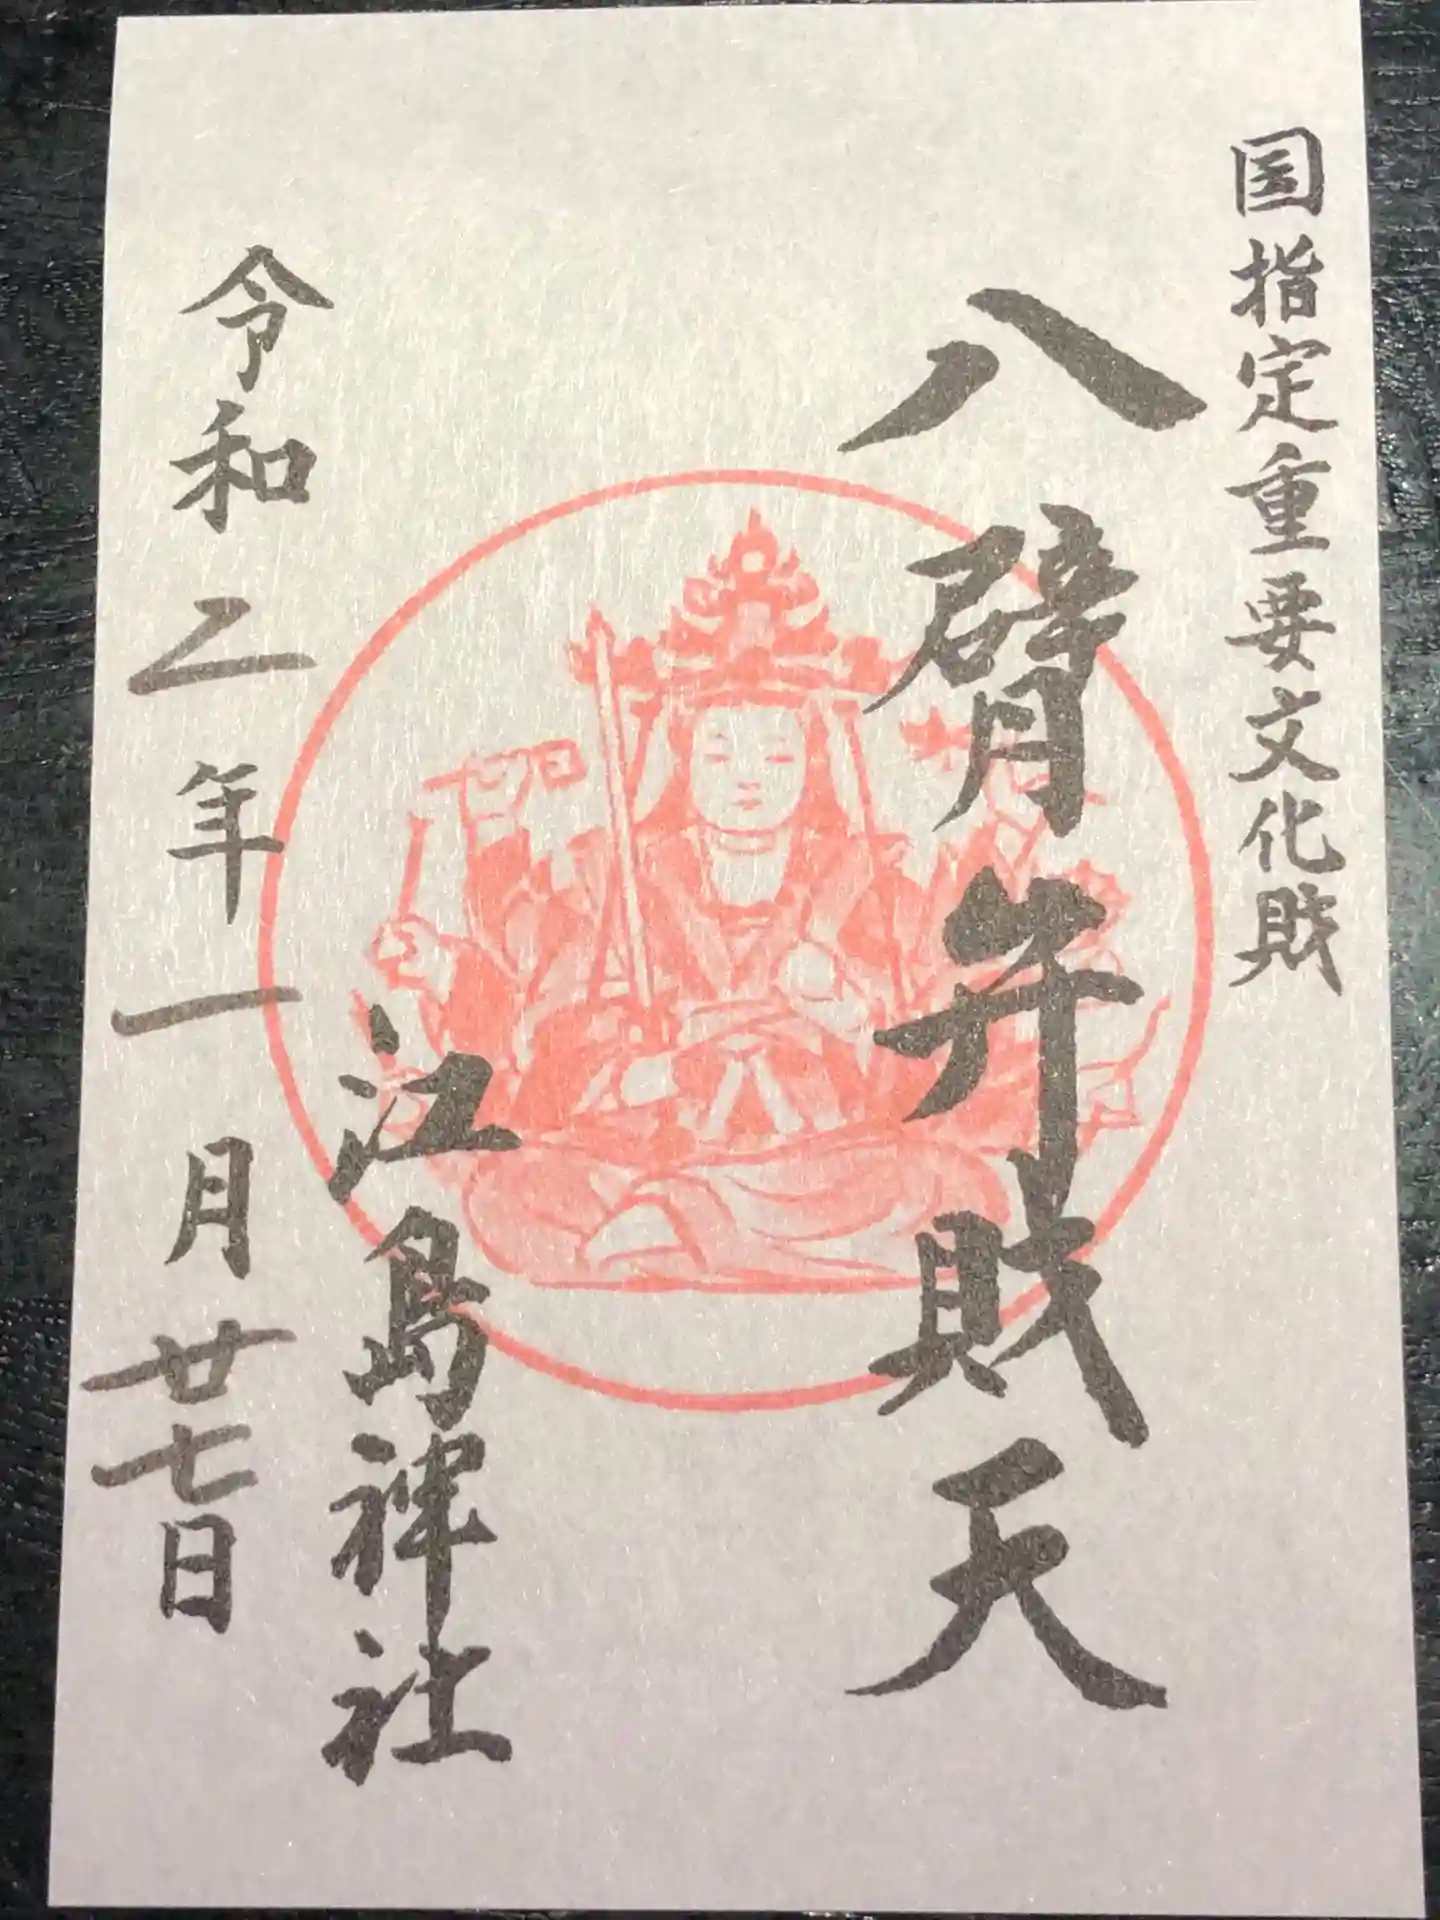 国指定重要文化財
八臂弁財天
江島神社
令和二年一月廿七日